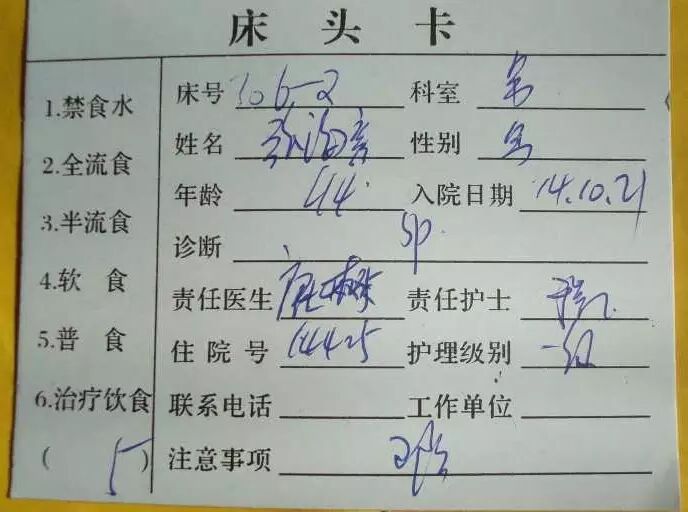 床头卡
1.禁食水
2.全流食
3.半流食
4.软 食
5.普 食
6.治疗饮食
( 5 )
床号 306-2 科室
姓名 性别
年龄 44 入院日期 14.10.21
诊断 sp
责任医生 责任护士
住院号 14425 护理级别 一级
联系电话 工作单位
注意事项